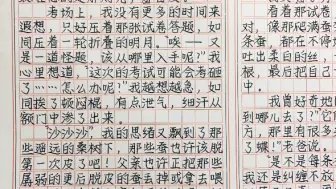 考场上，我没有更多的时间来
遐想，只好苦着那张试卷答题，如
同压着一轮折叠的明月。唉——又
是一道怪题，该从哪里入手呢？我
心里想道，“这次的考试可能会考砸
了……怎么办呢！”我越想越急，如
同挨了顿闷棍，有点泄气，细汗从
额门中渗了出来。
“沙沙沙”，我的思绪又飘到了那
些遥远的桑树下，那些蚕也许该脱
第一次皮了吧！父亲也许正把那些
孱弱的更后脱皮的蚕去掉或拿去喂
看着那试卷
条，像那爬满蚕
条蚕，都在不停
吐出柔白的丝，
根，最后把自己
中。
我曾好奇地
到哪儿去了？”
方，那里有很多
了蝶！”老爸说。
“是不是每条
我还是纠缠不放